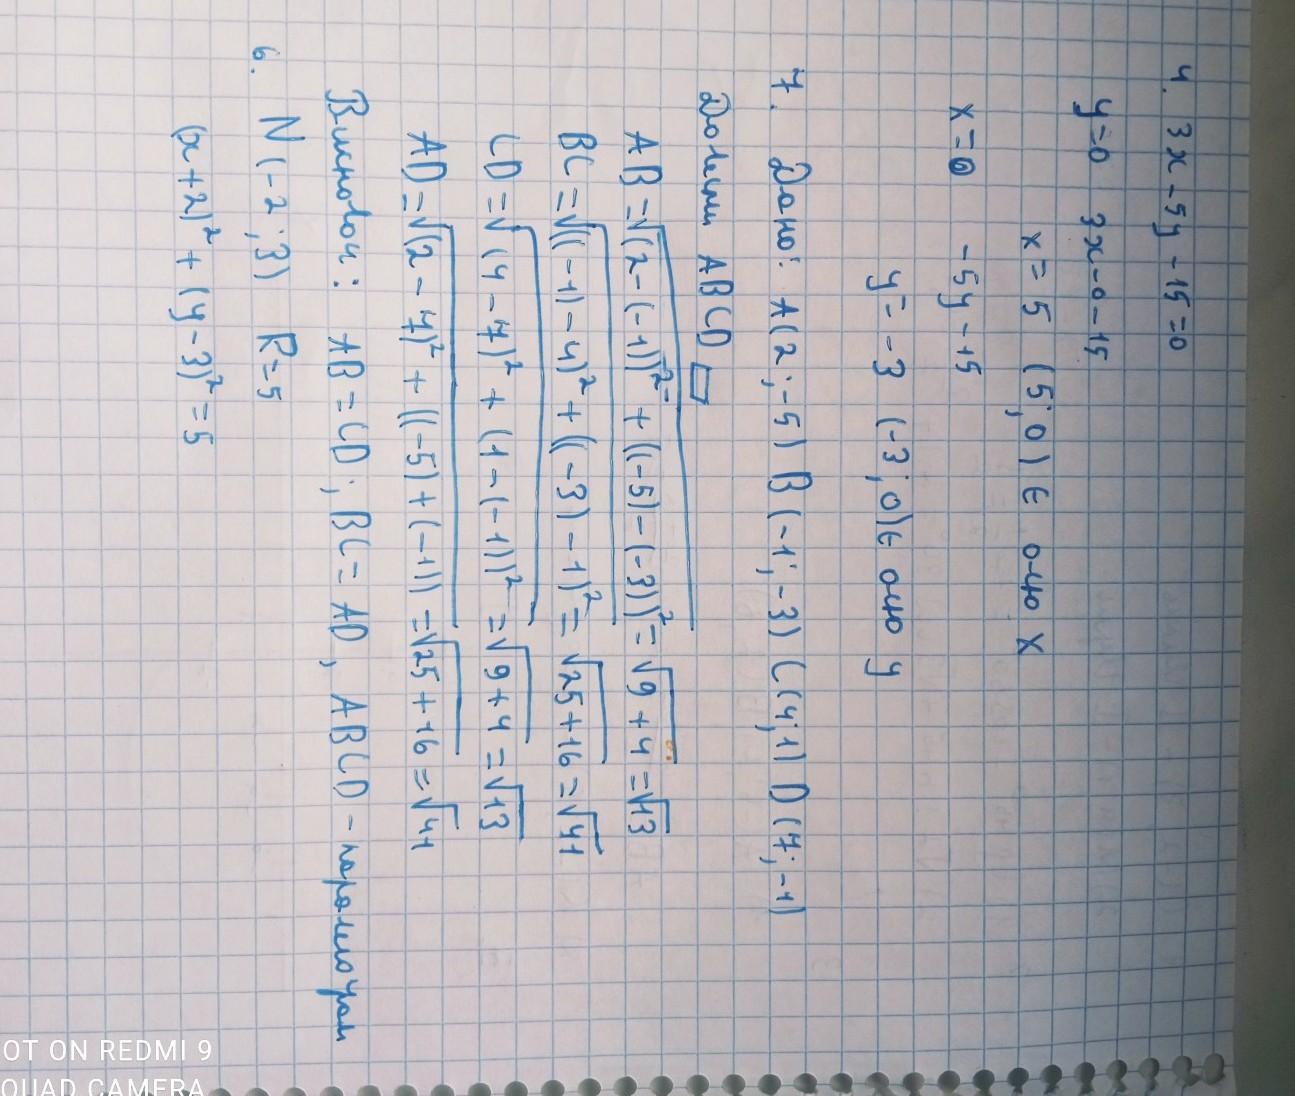 4. 3x - 5y - 15 = 0
y = 0 3x - 0 - 15
x = 5 (5; 0) ∈ осю X
x = 0 - 5y - 15
y = -3 (-3; 0) ∈ осю y
7. Дано: A(2; -5) B(-1; -3) C(4; 1) D(7; -1)
Довести ABCD ▱
AB = √(2 - (-1))² + ((-5) - (-3))² = √9 + 4 = √13
BC = √((-1) - 4)² + ((-3) - 1)² = √25 + 16 = √41
CD = √(4 - 7)² + (1 - (-1))² = √9 + 4 = √13
AD = √(2 - 7)² + ((-5) + (-1)) = √25 + 16 = √41
Висновок: AB = CD; BC = AD, ABCD - паралелограм
6. N(-2; 3) R = 5
(x + 2)² + (y - 3)² = 5
OT ON REDMI 9
QUAD CAMERA